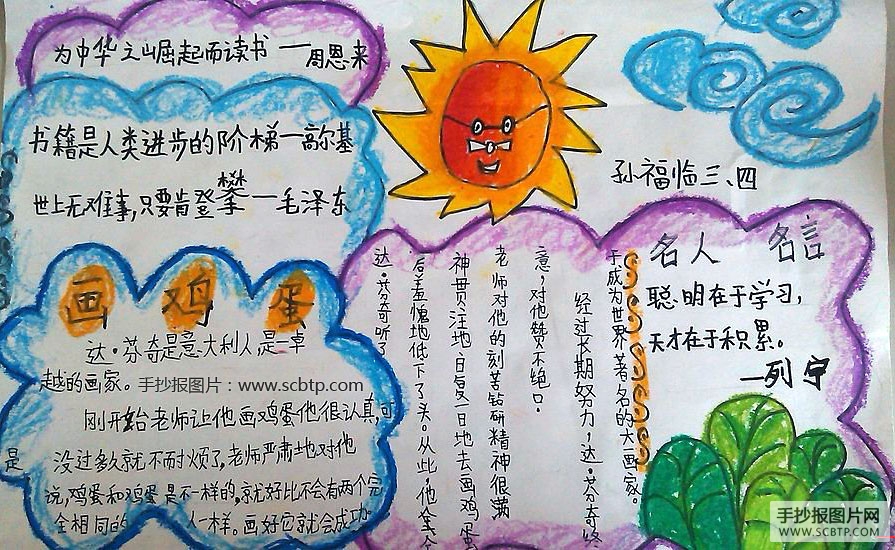 为中华之崛起而读书——周恩来
书籍是人类进步的阶梯—高尔基
世上无难事,只要肯登攀—毛泽东
孙福临三、四
画鸡蛋
达·芬奇是意大利人是一卓
越的画家。
刚开始老师让他画鸡蛋他很认真,可
是
没过多久就不耐烦了,老师严肃地对他
说,鸡蛋和鸡蛋是不一样的,就好比不会有两个完
全相同的 人一样。画好它就会成功
达·芬奇听了
后羞愧地低下了头。从此,他全
神贯注地日复一日地去画鸡蛋
老师对他的刻苦钻研精神很满
意,对他赞不绝口。
经过长期努力,达·芬奇终
于成为世界著名的大画家。
名人 名言
聪明在于学习,
天才在于积累。
—列宁
手抄报图片:www.scbtp.com
手抄报图片网
WWW.SCBTP.COM